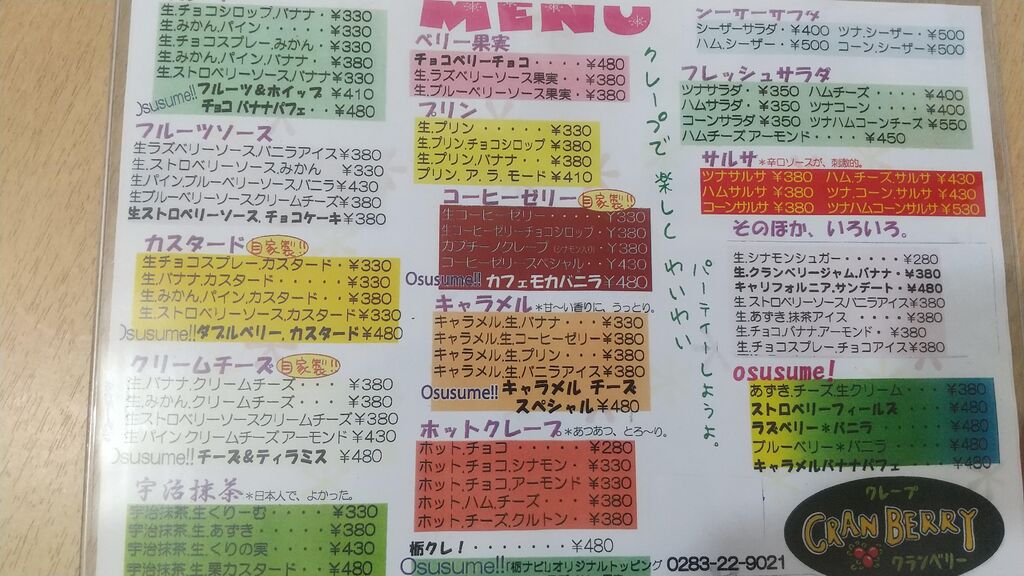 生.チョコシロップ.バナナ・¥330
生.みかん.パイン・・・・・¥330
生.チョコスプレー.みかん・¥330
生.みかん.パイン.バナナ・¥380
生.ストロベリーソース.バナナ¥330
Osusume!!フルーツ&ホイップ ¥410
チョコ バナナパフェ・¥480
フルーツソース
生.ラズベリーソース.バニラアイス¥380
生.ストロベリーソース.みかん ¥330
生.パイン.ブルーベリーソース.バニラ¥430
生.ブルーベリーソースクリームチーズ¥380
生.ストロベリーソース.チョコケーキ¥380
カスタード 自家製!!
生.チョコスプレー.カスタード・¥330
生.バナナ.カスタード・・・・¥330
生.みかん.パイン.カスタード・¥380
生.ストロベリーソース.カスタード¥330
Osusume!!ダブルベリー.カスタード¥480
クリームチーズ 自家製!!
生.バナナ.クリームチーズ・・・¥380
生.みかん.クリームチーズ・・・¥380
生.ストロベリーソースクリームチーズ¥380
生.パイン.クリームチーズ.アーモンド¥430
Osusume!!チーズ&ティラミス ¥480
宇治抹茶*日本人で、よかった。
宇治抹茶.生くりーむ・・・・¥330
宇治抹茶.生.あずき・・・・・¥380
宇治抹茶.生.くりの実・・・・¥430
宇治抹茶.生.栗カスタード・・¥480
MENU
ベリー果実
チョコベリーチョコ・・・・・¥480
生.ラズベリーソース果実・・¥380
生.ブルーベリーソース果実・¥380
プリン
生.プリン・・・・・・¥330
生.プリン.チョコシロップ¥380
生.プリン.バナナ・・¥380
プリン.ア.ラ.モード¥410
コーヒーゼリー 自家製!!
生コーヒーゼリー・・・・・¥330
生コーヒーゼリーチョコシロップ・¥380
カプチーノクレープ(シナモン入り)・¥380
コーヒーゼリースペシャル・・¥430
Osusume!!カフェモカバニラ¥480
キャラメル *甘〜い香りに、うっとり。
キャラメル.生.バナナ・・・¥330
キャラメル.生コーヒーゼリー¥380
キャラメル.生.プリン・・・¥380
キャラメル.生.バニラアイス¥380
Osusume!!キャラメル チーズ
スペシャル¥480
ホットクレープ*あつあつ、とろ〜り。
ホット.チョコ・・・・・・¥280
ホット.チョコ.シナモン・¥330
ホット.チョコ.アーモンド¥330
ホット.ハム.チーズ・・・¥380
ホット.チーズ.クルトン・¥380
栃クレ!・・・・・・・¥480
Osusume!!「栃ナビ!」オリジナルトッピング
0283-22-9021
クレープで楽しく わいわい
パーティーしようよ。
シーザーサラダ
シーザーサラダ・¥400 ツナ.シーザー・¥500
ハム.シーザー・¥500 コーン.シーザー¥500
フレッシュサラダ
ツナサラダ・¥350 ハムチーズ・・・・¥400
ハムサラダ・¥350 ツナコーン・・・・¥400
コーンサラダ¥350 ツナハムコーンチーズ¥550
ハムチーズ アーモンド・・・・¥450
サルサ*辛口ソースが、刺激的。
ツナサルサ ¥380 ハム.チーズ.サルサ ¥430
ハムサルサ ¥380 ツナ.コーン.サルサ ¥430
コーンサルサ ¥380 ツナハムコーンサルサ ¥530
そのほか、いろいろ。
生.シナモンシュガー・・・・・¥280
生.クランベリージャム.バナナ・¥380
キャリフォルニア.サンデート・¥480
生.ストロベリーソースバニラアイス¥380
生.あずき.抹茶アイス・・・・・¥380
生.チョコ.バナナ.アーモンド・¥380
生.チョコスプレー.チョコアイス¥380
osusume!
あずき.チーズ.生クリーム・・・¥380
ストロベリーフィールズ・・・・¥480
ラズベリー*バニラ・・・・・・¥480
ブルーベリー*バニラ・・・・・¥480
キャラメルバナナパフェ・・・・¥480
クレープ
CRAN BERRY
クランベリー